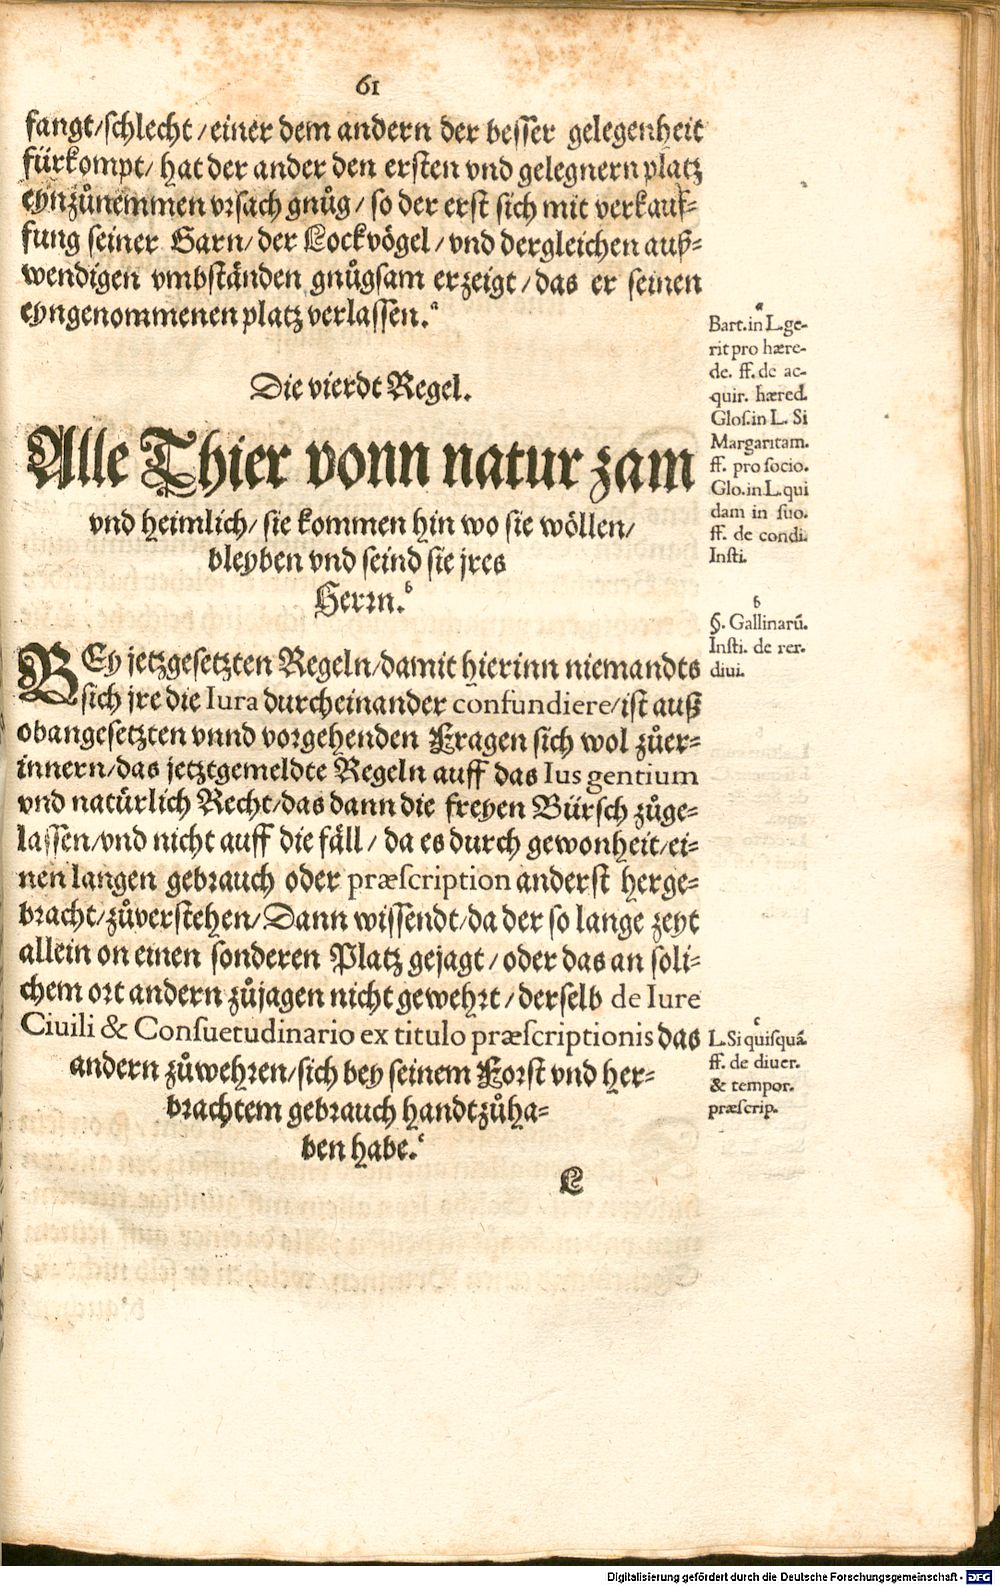 61
fangt/schlecht/einer dem andern der besser gelegenheit
fürkompt/ hat der ander den ersten vnd gelegnern platz
eynzůnemmen vrsach gnůg/ so der erst sich mit verkauf-
fung seiner Garn/ der Lockvögel/ vnd dergleichen auß-
wendigen vmbständen gnůgsam erzeigt/ das er seinen
eyngenommenen platz verlassen.a
Die vierdt Regel.
Alle Thier vonn natur zam
vnd heimlich/ sie kommen hin wo sie wöllen/
bleyben vnd seind sie jres
Herrn.b
BEy jetzgesetzten Regeln/damit hierinn niemandts
sich jre die Iura durcheinander confundiere/ist auß
obangesetzten vnnd vorgehenden Fragen sich wol zůer-
innern/das jetztgemeldte Regeln auff das Ius gentium
vnd natürlich Recht/das dann die freyen Bürsch zůge-
lassen/vnd nicht auff die fäll/ da es durch gewonheit/ei-
nen langen gebrauch oder præscription anderst herge-
bracht/zůverstehen/Dann wissendt/da der so lange zeyt
allein on einen sonderen Platz gejagt/oder das an soli-
chem ort andern zůjagen nicht gewehrt/derselb de Iure
Ciuili & Consuetudinario ex titulo præscriptionis das
andern zůwehren/sich bey seinem Forst vnd her-
brachtem gebrauch handtzůha-
ben habe.c
L
a
Bart. in L. ge-
rit pro hære-
de. ff. de ac-
quir. hæred.
Glos. in L. Si
Margaritam.
ff. pro socio.
Glo. in L. qui
dam in suo.
ff. de condi.
Insti.
b
§. Gallinarū.
Insti. de rer.
diui.
c
L. Si quisquā
ff. de diuer.
& tempor.
præscrip.
Digitalisierung gefördert durch die Deutsche Forschungsgemeinschaft - DFG